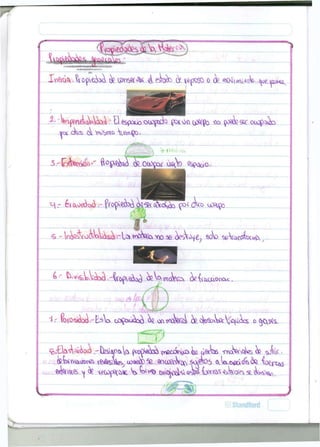 Propiedades de la Materia
Propiedades generales.
Inercia. Propiedad de conservar el estado de reposo o de movimiento que posee.
2.- Impenetrabilidad.- El espacio ocupado por un cuerpo no puede ser ocupado
por otro al mismo tiempo.
3.- Extensión.- Propiedad de ocupar un espacio.
4.- Gravedad.- Propiedad d ser atraído por otro cuerpo
5.- Indestructibilidad.- La materia no se destruye, solo se transforma.
6.- Divisibilidad.- Propiedad de la materia de fraccionar.
7. Porosidad.- Es la capacidad de un material de absorber líquidos o gases.
8. Elasticidad.- Designa la propiedad mecánica de ciertos materiales de sufrir
deformaciones reversibles, cuando se encuentran sujetos a la acción de fuerzas
exteriores y de recuperar la forma original si estas fuerzas exteriores se eliminan.
Standford